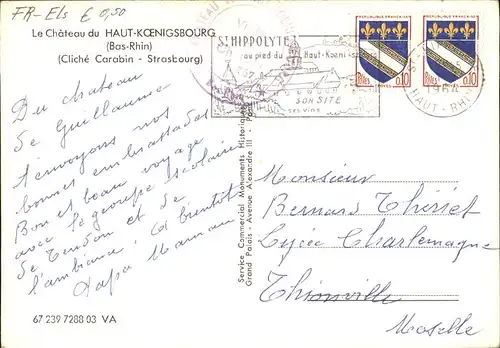 FR-Els € 0,50
Le Château du HAUT-KŒNIGSBOURG
(Bas-Rhin)
(Cliché Carabin - Strasbourg)
St HIPPOLYTE
au pied du Haut-Koeni
SON SITE
ses vins
REPUBLIQUE FRANÇAISE
REPUBLIQUE FRANÇAISE
Postes 0,10
TROYES
Postes 0,10
TROYES
1964
HAUT-RHIN
Du chateau
de Guillaume
t'envoyons nos
bonnes embrassades
Bon et beau voyage
avec le groupe scolaire
de Tendon et de
l'ambiance. A bientôt
Papa Maman
Service Commercial Monuments Historiques
Grand Palais - Avenue Alexandre III - Paris
Monsieur
Bernard Thiriet
Lycée Charlemagne
Thionville
Moselle
67 239 7288 03 VA